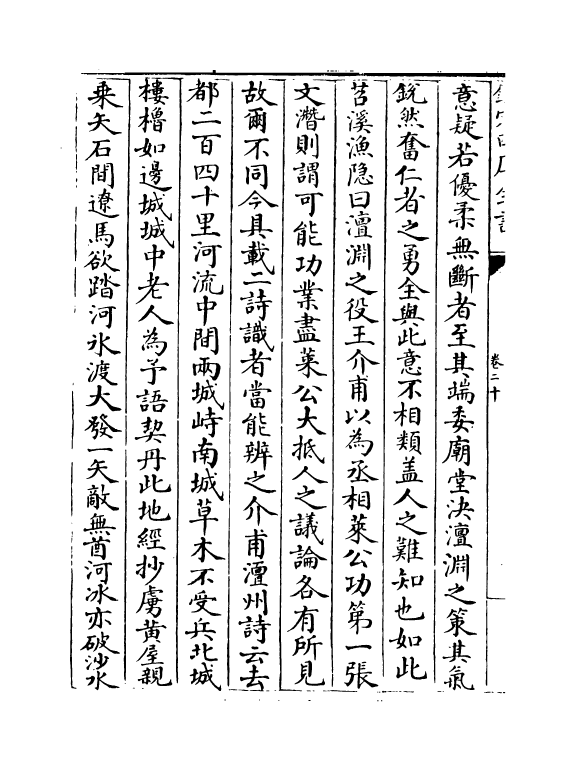 意疑若優柔無斷者至其端委廟堂決澶淵之策其氣
銳然奮仁者之勇全與此意不相類盖人之難知也如此
苕溪漁隐曰澶淵之役王介甫以為丞相萊公功第一張
文潛則謂可能功業盡萊公大抵人之議論各有所見
故爾不同今具載二詩識者當能辨之介甫澶州詩云去
都二百四十里河流中間兩城峙南城草木不受兵北城
樓櫓如邊城城中老人為予語契丹此地經抄虜黄屋親
乗矢石間遼馬欲踏河氷渡大發一矢敵無酋河冰亦破沙水
卷二十